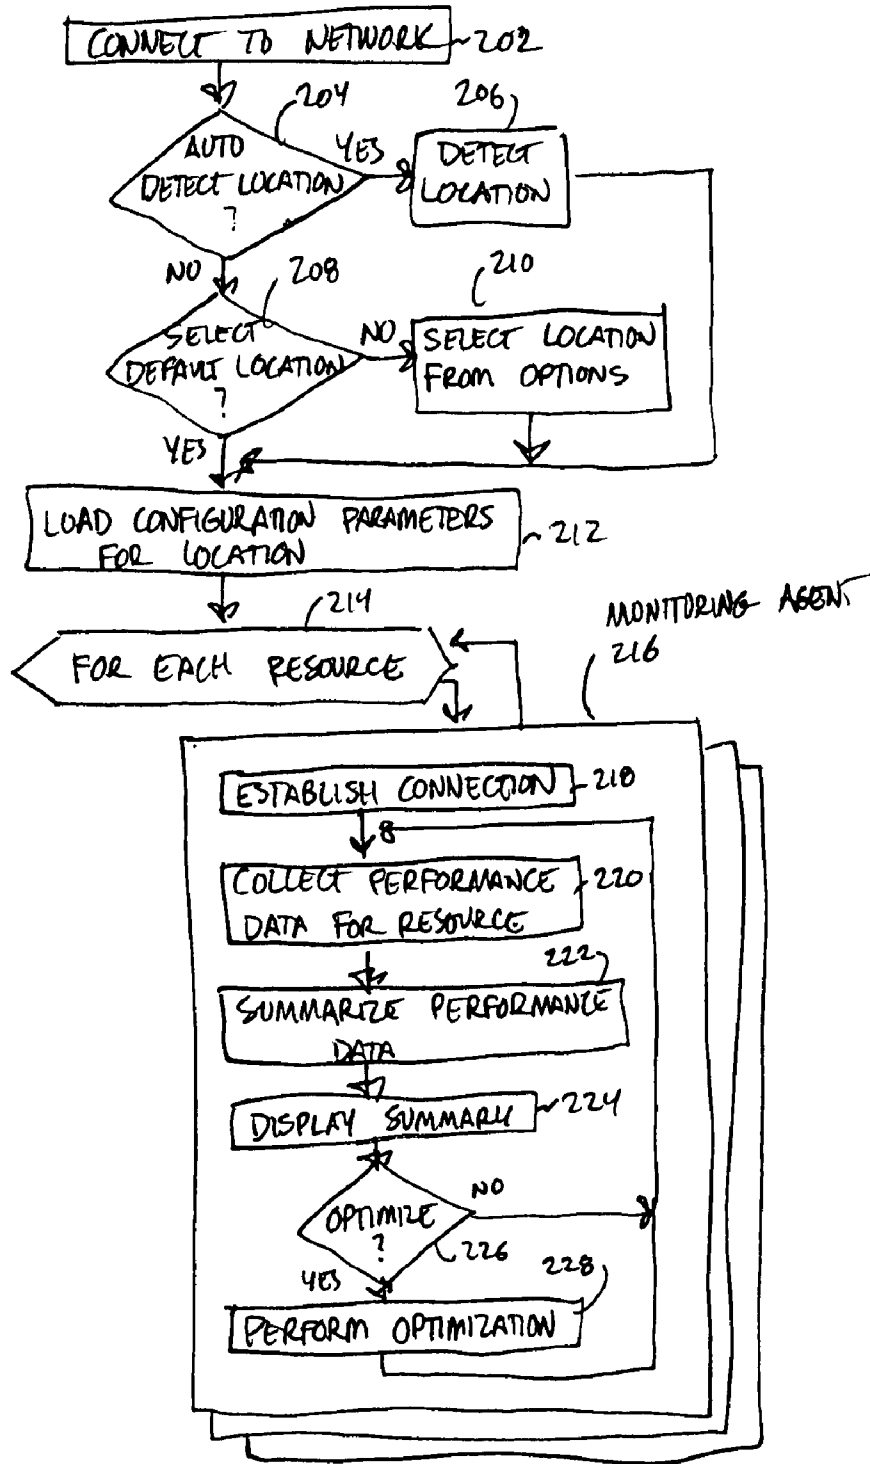 CONNECT TO NETWORK 202
204
206
AUTO
DETECT LOCATION
?
YES
DETECT
LOCATION
NO
208
210
SELECT
DEFAULT LOCATION
?
NO
SELECT LOCATION
FROM OPTIONS
YES
LOAD CONFIGURATION PARAMETERS
FOR LOCATION
212
214
FOR EACH RESOURCE
MONITORING AGENT
216
ESTABLISH CONNECTION 218
COLLECT PERFORMANCE
DATA FOR RESOURCE
220
222
SUMMARIZE PERFORMANCE
DATA
DISPLAY SUMMARY 224
OPTIMIZE
?
NO
226
YES
228
PERFORM OPTIMIZATION